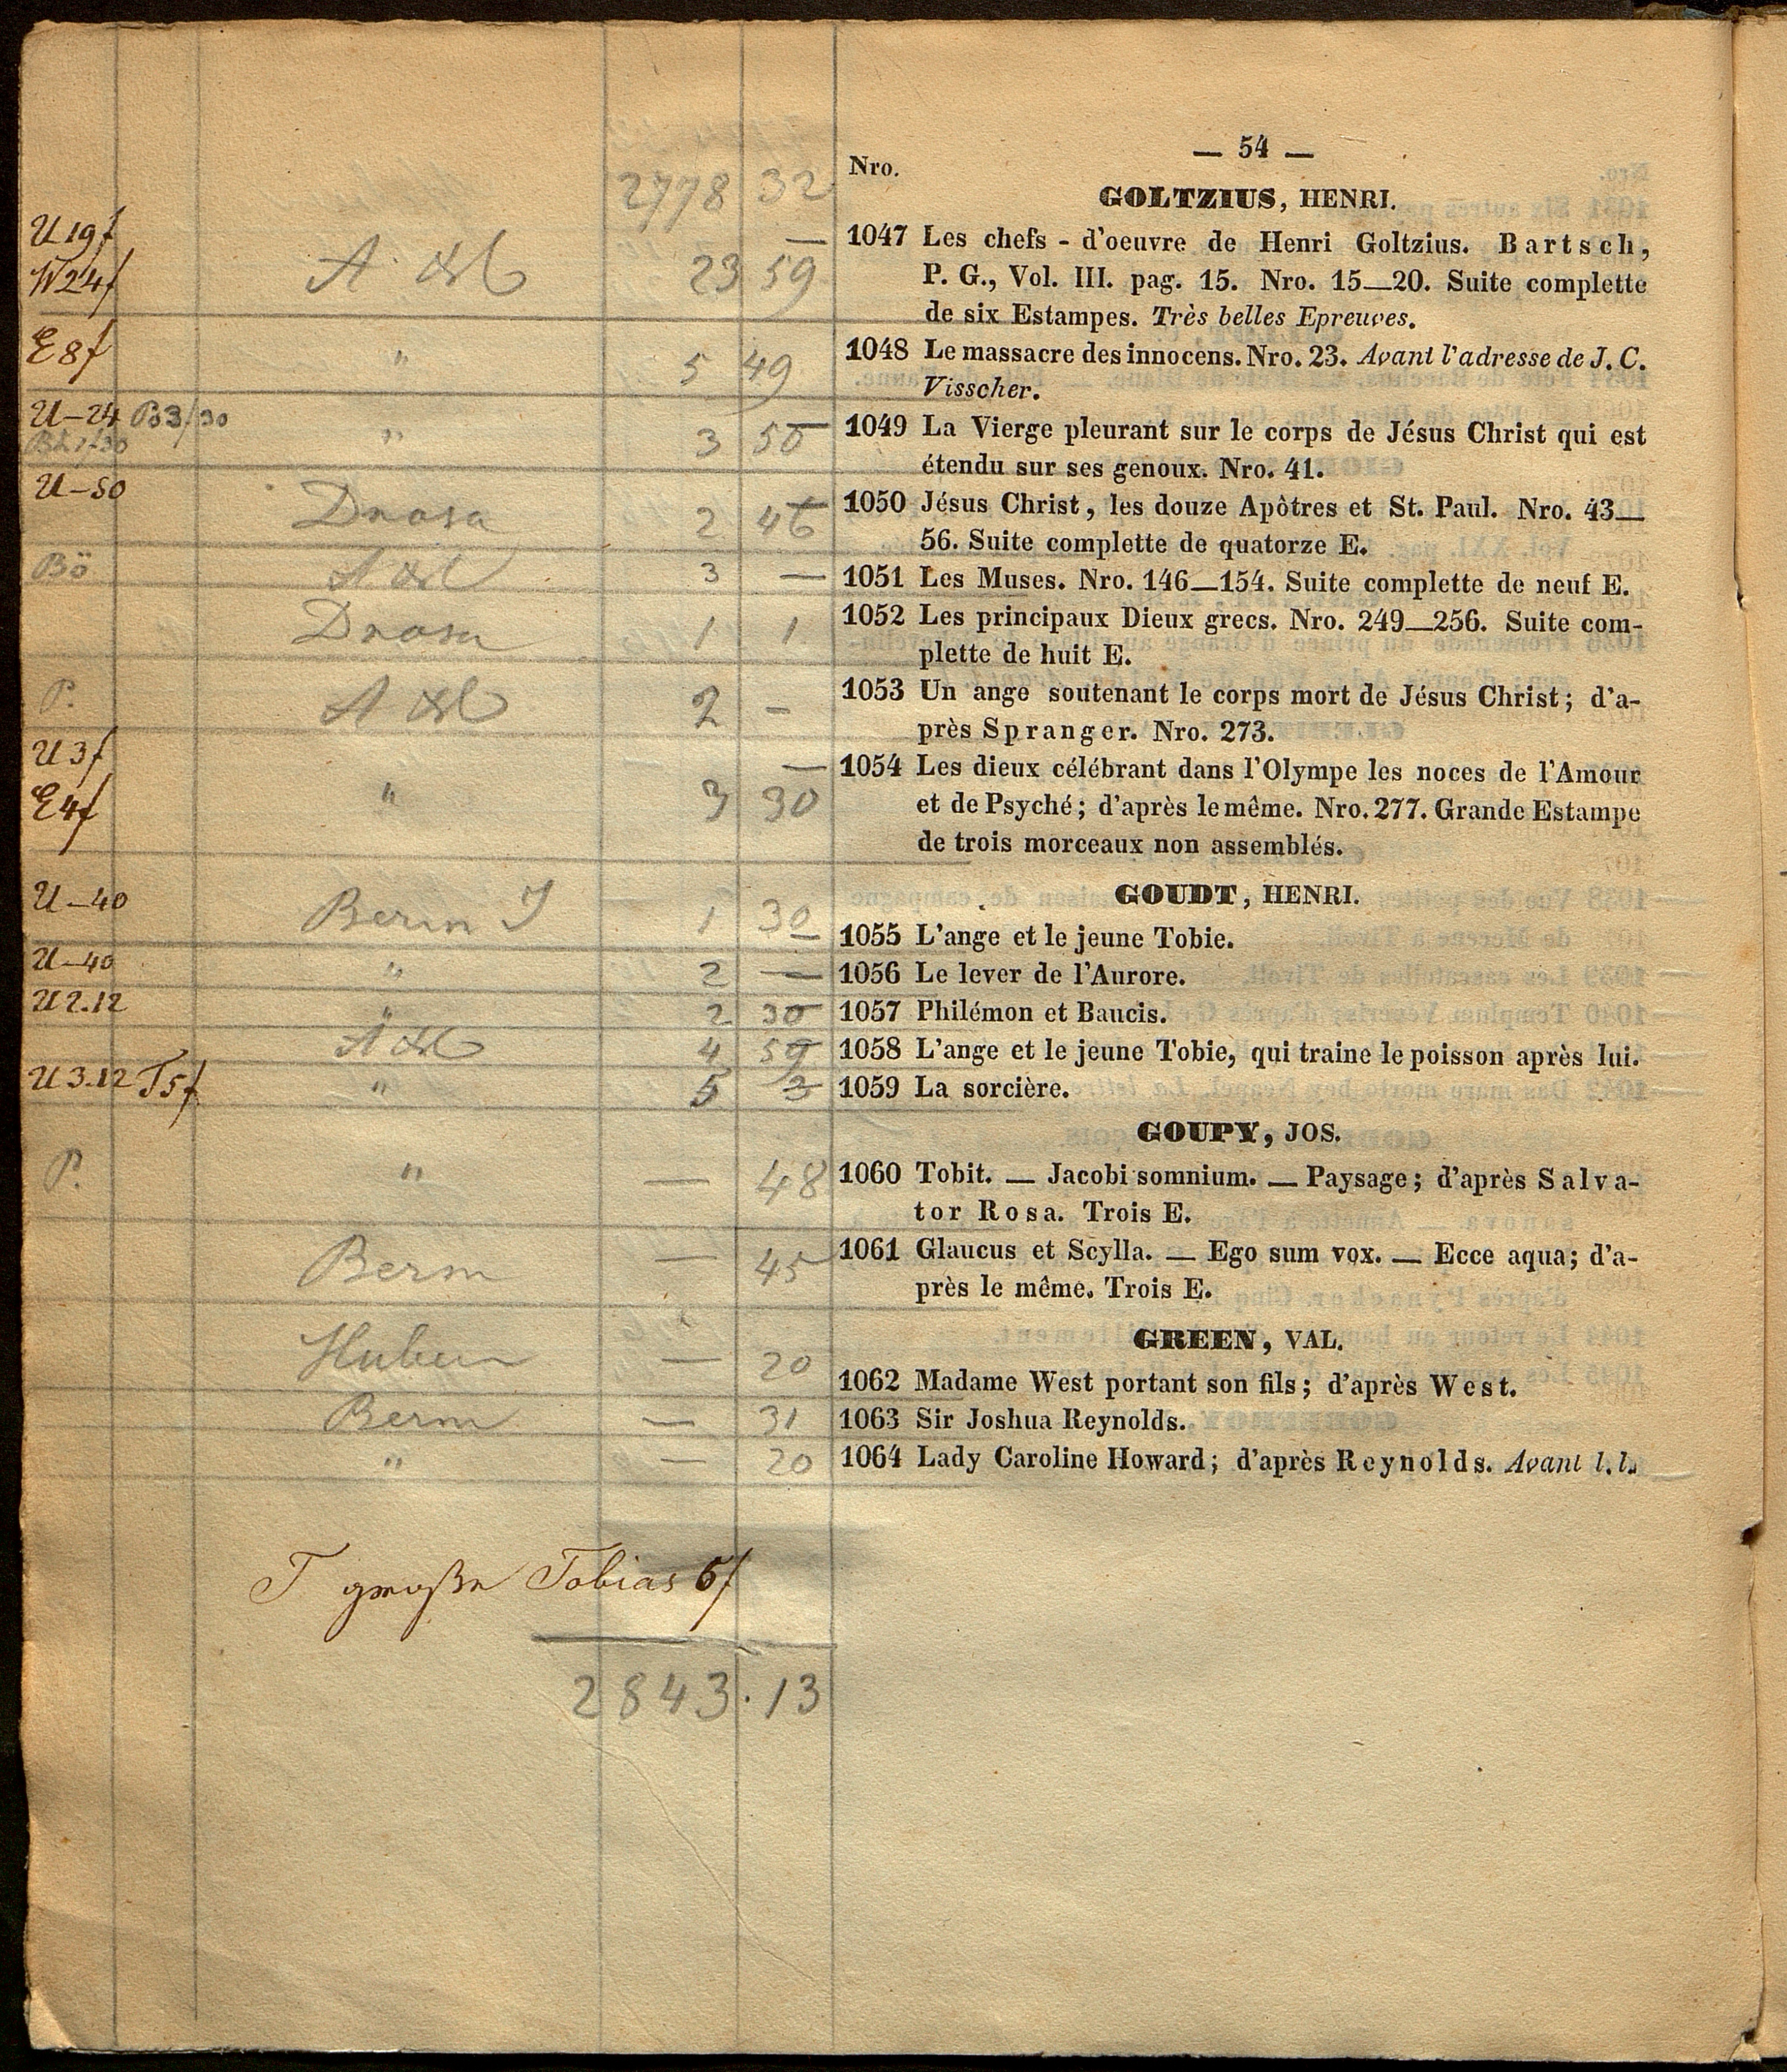 — 54 —
Nro.
2778 32
GOLTZIUS, HENRI.
U 19f
W 24f
23 59
1047 Les chefs - d'oeuvre de Henri Goltzius. Bartsch,
P. G., Vol. III. pag. 15. Nro. 15—20. Suite complette
de six Estampes. Très belles Epreuves.
E 8f
" 5 49
1048 Le massacre des innocens. Nro. 23. Avant l'adresse de J. C.
Visscher.
U—24 B3/30
" 3 50
1049 La Vierge pleurant sur le corps de Jésus Christ qui est
étendu sur ses genoux. Nro. 41.
U—50
2 46
1050 Jésus Christ, les douze Apôtres et St. Paul. Nro. 43—
56. Suite complette de quatorze E.
Bö
3 —
1051 Les Muses. Nro. 146—154. Suite complette de neuf E.
1 1
1052 Les principaux Dieux grecs. Nro. 249—256. Suite com-
plette de huit E.
P.
2 —
1053 Un ange soutenant le corps mort de Jésus Christ; d'a-
près Spranger. Nro. 273.
U 3f
E 4f
" 3 30
1054 Les dieux célébrant dans l'Olympe les noces de l'Amour
et de Psyché; d'après le même. Nro. 277. Grande Estampe
de trois morceaux non assemblés.
GOUDT, HENRI.
U—40
1 30
1055 L'ange et le jeune Tobie.
U—40
" 2 —
1056 Le lever de l'Aurore.
U 2.12
" 2 30
1057 Philémon et Baucis.
4 59
1058 L'ange et le jeune Tobie, qui traine le poisson après lui.
U 3.12 T5f
" 5 3
1059 La sorcière.
GOUPY, JOS.
P.
" — 48
1060 Tobit. — Jacobi somnium. — Paysage; d'après Salva-
tor Rosa. Trois E.
Berm — 45
1061 Glaucus et Scylla. — Ego sum vox. — Ecce aqua; d'a-
près le même. Trois E.
GREEN, VAL.
— 20
1062 Madame West portant son fils; d'après West.
Berm — 31
1063 Sir Joshua Reynolds.
" — 20
1064 Lady Caroline Howard; d'après Reynolds. Avant l. l.
T große Tobias 6f
2843.13